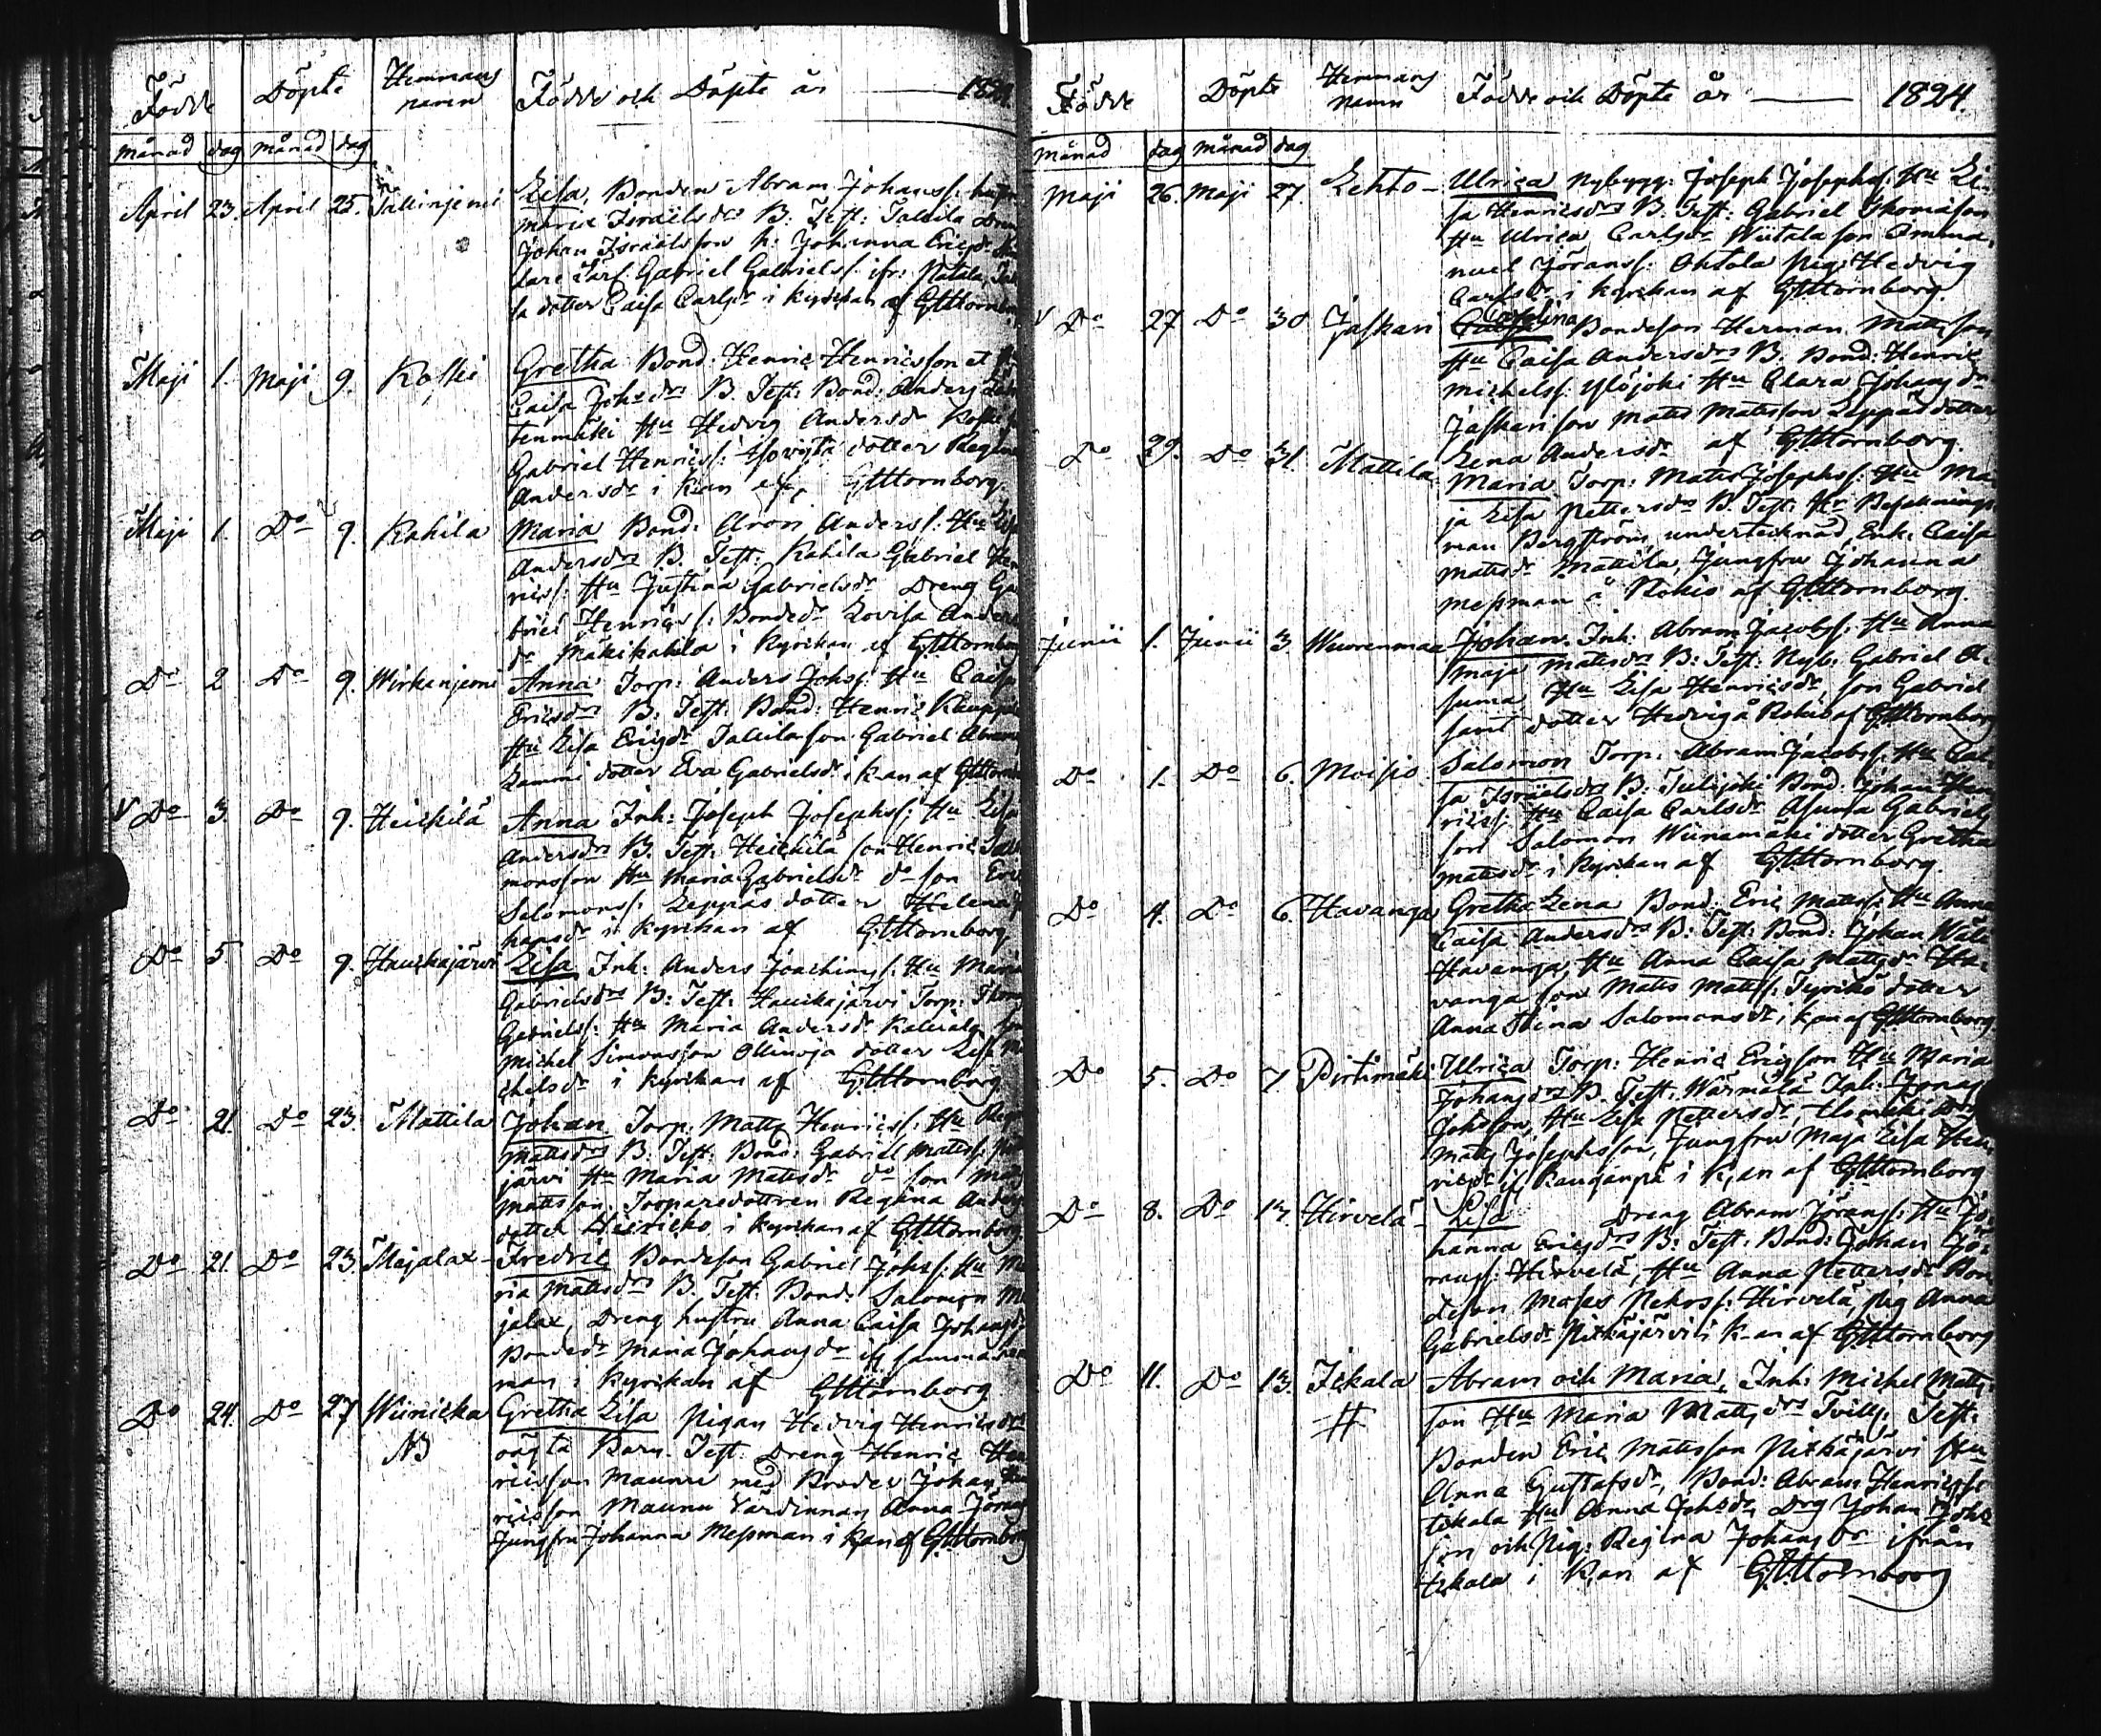 Födde Döpte Hemmans namn Födde och Döpte år 1824
månad dag månad dag
April 23. April 25. Tallinjemi Lisa, Bonden Abram Johanss: hustru
maria Israëlsdrs B. Test: Tallila
Johan Israëlsson h: Johanna Ericsdr
Gabriel Gabrielss. ifr: Natala,
dotter Caisa Carlsdr i kyrkan af GHtornberg
Maji 1. Maji 9. Koski Gretha Bond: Henric Henricsson et
Caisa Johsdrs B. Test: Bond: Anders
tenmäki Hu Hedvig Andersdr Koski
Gabriel Henricss: dotter Regina
Andersdr i kan af GHtornberg.
Maji 1. Do 9. Kahila Maria Bond: Aron Anderss: Hu Lisa
Andersdrs B. Test: Kahila Gabriel Hen
rics: Hu Justina Gabrielsdr Dreng Ga
briel Henricss: Bondedr Lovisa Anders
dr Mäkikahila i kyrkan af GHtornberg
Do 2 Do 9. Wirkanjemi Anna Torp: Anders Johss: Hu Caisa
Ericsdrs B: Test: Bond: Henric Kauppi
Hu Lisa Ericsdr Tallila son Gabriel Abrams
Lammi dotter Eva Gabrielsdr i k-an af GHtornberg
V Do 3. Do 9. Heickilä Anna Inh: Joseph Josephss: Hu Lisa
Andersdrs B. Test: Heickilä son Henric Salo
monsson Hu Maria Gabrielsdr do son Eric
Salomonss: Leppäs dotter Helena
hansdr i kyrkan af GHtornberg
Do 5. Do 9. Hauckajärvi Lisa Inh: Anders Joachimss: Hu Maria
Gabrielsdrs B: Test: Hauckajärvi Torp: Thoms
Gabrielss: Hu Maria Andersdr Kalliala son
Michel Simonsson Ollinoja dotter Lisa Mi
chelsdr i kyrkan af GHtornberg
Do 21. Do 23. Mattila Johan Torp: Matts Henricss: Hu Regina
Mattsdrs B. Test: Bond: Gabriel Matss:
järvi Hu Maria Matsdr do son Mats
Matsson, Torparedottren Regina Anders
dotter i kyrkan af GHtornberg
Do 21. Do 23. Majalax Fredric Bondeson Gabriel Johss: Hu Ma
ria Matsdrs B. Test: Bond: Salomon Ma
jalax, Dreng hustru Anna Caisa Johansdr
Bondedr Maria Johansdr ifr samma
man i kyrkan af GHtornberg
Do 24. Do 27 Wiinicka Gretha Lisa Pigan Hedvig Henricsdrs
NB oägta Barn. Test. Dreng Henric Hen
ricsson Maunu med Broder Johan Hen
ricsson Maunu Värdinnan Anna Jörans
Jungfru Johanna Messman i kan af GHtornberg
Födde Döpte Hemmans namn Födde och Döpte år 1824.
månad dag månad dag
Maji 26. Maji 27. Lehto Ulrica Nybygg: Joseph Josephss: Hu Li
sa Henricsdrs B. Test: Gabriel Thomasson
Hu Ulrica Carlsdr Wiitala son Emma
nuel Jöranss: Ohtola pig: Hedvig
Carlsdr i kyrkan af GHtornberg.
V Do 27 Do 30 Jaskari Carolina Bondeson Herman Matsson
Hu Caisa Andersdrs B. Bond: Henric
Michelss: Ylöjoki Hu Clara Johansdr
Jaskari son Mats Matsson Leppäs dotter
Lena Andersdr af GHtornberg
Do 29. Do 31. Mattila Maria Torp: Mats Josephss: Hu Ma
ja Lisa Pettersdrs B. Test: Hr Besöknings
man Bergström undertecknad, Enk: Caisa
Matsdr Mattila, Jungfru Johanna
Messman å Rokio af GHtornberg.
Junii 1. Junii 3. Wuorenmaa Johan Inh: Abram Jacobss: Hu Anna
Maja Matsdrs B: Test: Nyb: Gabriel A
suma Hu Lisa Henricsdr, son Gabriel
samt dotter Hedvig å Rokio af GHtornberg
Do 1. Do 6. Moisio Salomon Torp: Abram Jacobss: Hu Cai
sa Israëlsdrs B: Tulijoki Bond: Johan Hen
ricss: Hu Caisa Carlsdr Asuma Gabriels
son Salomon Wiinamäki dotter Gretha
Matsdr i kyrkan af GHtornberg.
Do 4. Do 6. Havanga Gretha Lena Bond: Eric Matss: Hu Anna
Caisa Andersdrs B: Test: Bond: Johan Wäli
Havanga, Hu Anna Caisa Mattsdr Ha
vanga son Mats Matss: Tyrikö dotter
Anna Stina Salomonsdr i kan af GHtornberg
Do 5. Do 7. Pirtimäki Ulrica Torp: Henric Ericsson Hu Maria
Johansdrs B. Test: Wärmälä Inh: Jonas
Johsson, Hu Lisa Pettersdr
Mats Josephsson, Jungfru Maja Lisa Hen
ricsdr if Kauganpä i k,an af GHtornberg
Do 8. Do 13. Hirvelä Lisa Dreng Abram Jöranss: Hu Jo
hanna Ericsdrs B: Test: Bond: Johan Jö
ranss: Hirvelä, Hu Anna Pettersdr Bon
deson Moses Pehrss: Hirvelä, pig Anna
Gabrielsdr Pitkäjärvi i k-an af GHtornberg
Do 11. Do 13. Iskala Abram och Maria, Inh: Michel Matts
# son Hu Maria Mattsdrs Tvill: Test:
Bonden Eric Matsson Pitkäjärvi Hu
Anna Gustafsdr, Bond: Abram Henricss:
Iskala Hu Anna Johsdr, Drg Johan Johs
son och Pig: Regina Johansdr ifrån
Iskala i kan af GHtornberg